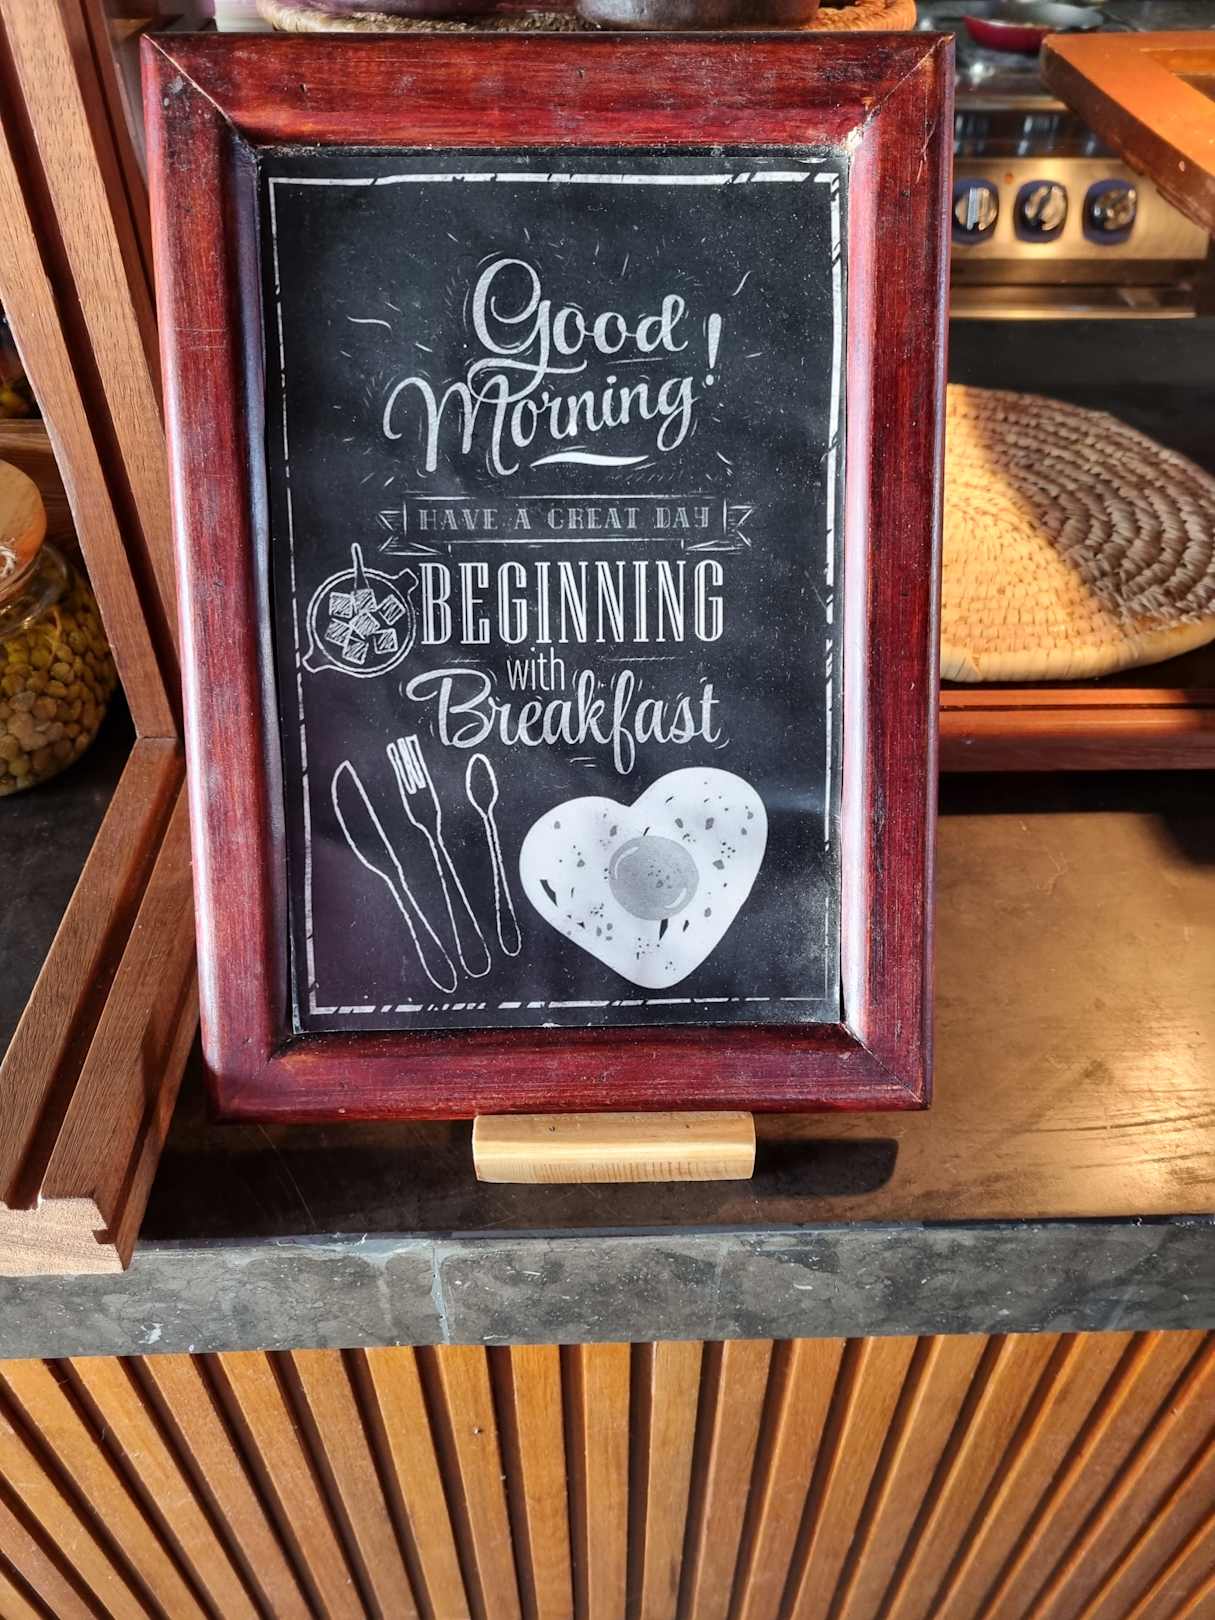 Good
Morning!
HAVE A GREAT DAY
BEGINNING
with
Breakfast